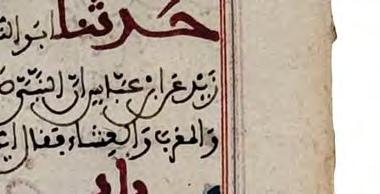 حدثنا ابو ال
زيد عن ابن عباس ان النبي
والمغرب والعشاء فقال
باب